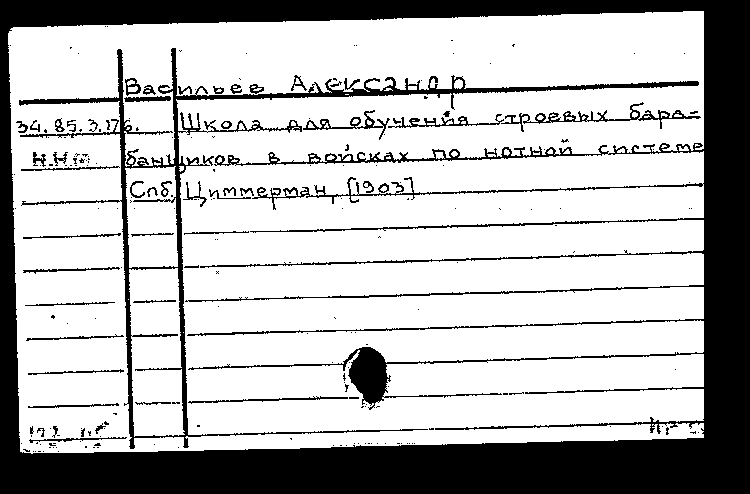 Васильев Александр
34.85.3.176. Школа для обучения строевых бара=
банщиков в войсках по нотной системе
Спб, Циммерман, [1903]